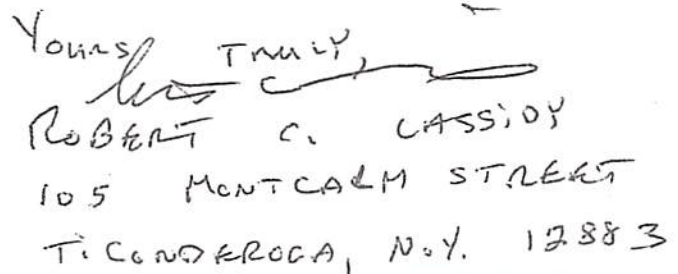 Yours Truly,
ROBERT C. CASSIDY
105 MONTCALM STREET
TICONDEROGA, N.Y. 12883